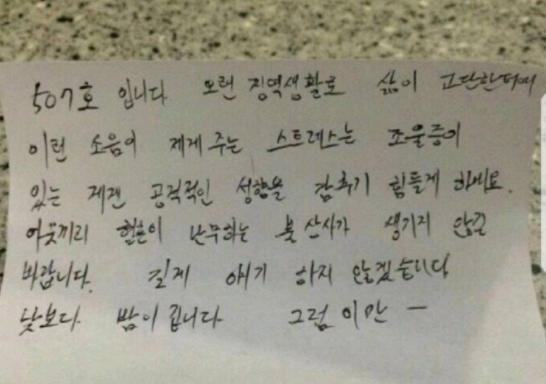 507호 입니다 오랜 징역생활로 삶이 고단한데
이런 소음이 제게 주는 스트레스는 조울증이
있는 제겐 공격적인 성향을 감추기 힘들게 하네요.
이웃끼리 현혈이 난무하는 불상사가 생기지 않길
바랍니다. 길게 얘기 하지 않겠습니다
낮보다. 밤이 깁니다 그럼 이만 ㅡ